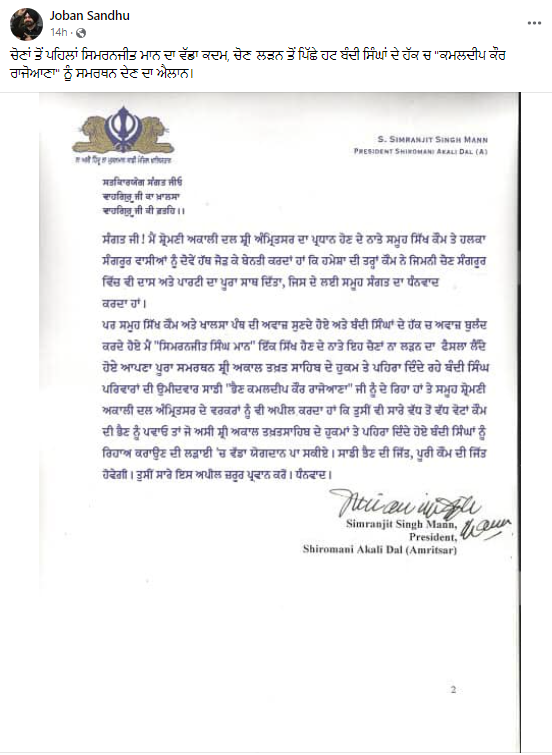 Joban Sandhu
14h
ਚੋਣਾਂ ਤੋਂ ਪਹਿਲਾਂ ਸਿਮਰਨਜੀਤ ਮਾਨ ਦਾ ਵੱਡਾ ਕਦਮ, ਚੋਣ ਲੜਨ ਤੋਂ ਪਿੱਛੇ ਹਟ ਬੰਦੀ ਸਿੰਘਾਂ ਦੇ ਹੱਕ ਚ "ਕਮਲਦੀਪ ਕੌਰ
ਰਾਜੋਆਣਾ" ਨੂੰ ਸਮਰਥਨ ਦੇਣ ਦਾ ਐਲਾਨ।
S. Simranjit Singh Mann
President Shiromani Akali Dal (A)
ਸਤਕਿਾਰਯੋਗ ਸੰਗਤ ਜੀਓ
ਵਾਹਗਿੁਰੂ ਜੀ ਕਾ ਖ਼ਾਲਸਾ
ਵਾਹਗਿੁਰੂ ਜੀ ਕੀ ਫ਼ਤਹਿ।।
ਸੰਗਤ ਜੀ ! ਮੈਂ ਸ਼੍ਰੋਮਣੀ ਅਕਾਲੀ ਦਲ ਸ਼੍ਰੀ ਅੰਮ੍ਰਿਤਸਰ ਦਾ ਪ੍ਰਧਾਨ ਹੋਣ ਦੇ ਨਾਤੇ ਸਮੂਹ ਸਿੱਖ ਕੌਮ ਤੇ ਹਲਕਾ
ਸੰਗਰੂਰ ਵਾਸੀਆਂ ਨੂੰ ਦੋਵੇਂ ਹੱਥ ਜੋੜ ਕੇ ਬੇਨਤੀ ਕਰਦਾਂ ਹਾਂ ਕਿ ਹਮੇਸ਼ਾ ਦੀ ਤਰ੍ਹਾਂ ਕੌਮ ਨੇ ਜਿਮਨੀ ਚੋਣ ਸੰਗਰੂਰ
ਵਿੱਚ ਵੀ ਦਾਸ ਅਤੇ ਪਾਰਟੀ ਦਾ ਪੂਰਾ ਸਾਥ ਦਿੱਤਾ, ਜਿਸ ਦੇ ਲਈ ਸਮੂਹ ਸੰਗਤ ਦਾ ਧੰਨਵਾਦ
ਕਰਦਾ ਹਾਂ।
ਪਰ ਸਮੂਹ ਸਿੱਖ ਕੌਮ ਅਤੇ ਖਾਲਸਾ ਪੰਥ ਦੀ ਅਵਾਜ਼ ਸੁਣਦੇ ਹੋਏ ਅਤੇ ਬੰਦੀ ਸਿੰਘਾਂ ਦੇ ਹੱਕ ਚ ਅਵਾਜ਼ ਬੁਲੰਦ
ਕਰਦੇ ਹੋਏ ਮੈਂ "ਸਿਮਰਨਜੀਤ ਸਿੰਘ ਮਾਨ" ਇੱਕ ਸਿੱਖ ਹੋਣ ਦੇ ਨਾਤੇ ਇਹ ਚੋਣਾਂ ਨਾ ਲੜਨ ਦਾ ਫੈਸਲਾ ਲੈਂਦੇ
ਹੋਏ ਆਪਣਾ ਪੂਰਾ ਸਮਰਥਨ ਸ਼੍ਰੀ ਅਕਾਲ ਤਖ਼ਤ ਸਾਹਿਬ ਦੇ ਹੁਕਮ ਤੇ ਪਹਿਰਾ ਦਿੰਦੇ ਰਹੇ ਬੰਦੀ ਸਿੰਘ
ਪਰਿਵਾਰਾਂ ਦੀ ਉਮੀਦਵਾਰ ਸਾਡੀ "ਭੈਣ ਕਮਲਦੀਪ ਕੌਰ ਰਾਜੋਆਣਾ" ਜੀ ਨੂੰ ਦੇ ਰਿਹਾ ਹਾਂ ਤੇ ਸਮੂਹ ਸ਼੍ਰੋਮਣੀ
ਅਕਾਲੀ ਦਲ ਅੰਮ੍ਰਿਤਸਰ ਦੇ ਵਰਕਰਾਂ ਨੂੰ ਵੀ ਅਪੀਲ ਕਰਦਾ ਹਾਂ ਕਿ ਤੁਸੀਂ ਵੀ ਸਾਰੇ ਵੱਧ ਤੋਂ ਵੱਧ ਵੋਟਾਂ ਕੌਮ
ਦੀ ਭੈਣ ਨੂੰ ਪਵਾਓ ਤਾਂ ਜੋ ਅਸੀ ਸ਼੍ਰੀ ਅਕਾਲ ਤਖ਼ਤਸਾਹਿਬ ਦੇ ਹੁਕਮਾਂ ਤੇ ਪਹਿਰਾ ਦਿੰਦੇ ਹੋਏ ਬੰਦੀ ਸਿੰਘਾਂ ਨੂੰ
ਰਿਹਾਅ ਕਰਾਉਣ ਦੀ ਲੜਾਈ 'ਚ ਵੱਡਾ ਯੋਗਦਾਨ ਪਾ ਸਕੀਏ। ਸਾਡੀ ਭੈਣ ਦੀ ਜਿੱਤ, ਪੂਰੀ ਕੌਮ ਦੀ ਜਿੱਤ
ਹੋਵੇਗੀ। ਤੁਸੀਂ ਸਾਰੇ ਇਸ ਅਪੀਲ ਜ਼ਰੂਰ ਪ੍ਰਵਾਨ ਕਰੋ। ਧੰਨਵਾਦ।
Simranjit Singh Mann,
President,
Shiromani Akali Dal (Amritsar)
2